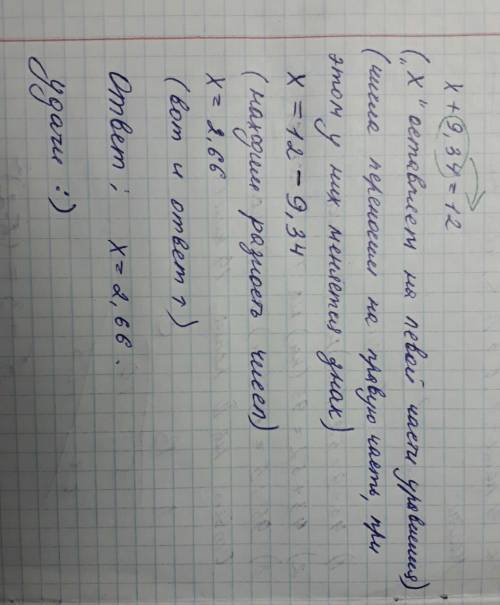 x + 9,34 = 12
(„X" оставляем на левой части уравнения)
(числа переносим на правую часть, при
этом у них меняется знак)
X = 12 - 9,34
(находим разность чисел)
X = 2,66
(вот и ответ ↑)
Ответ: X = 2,66.
Удачи :)